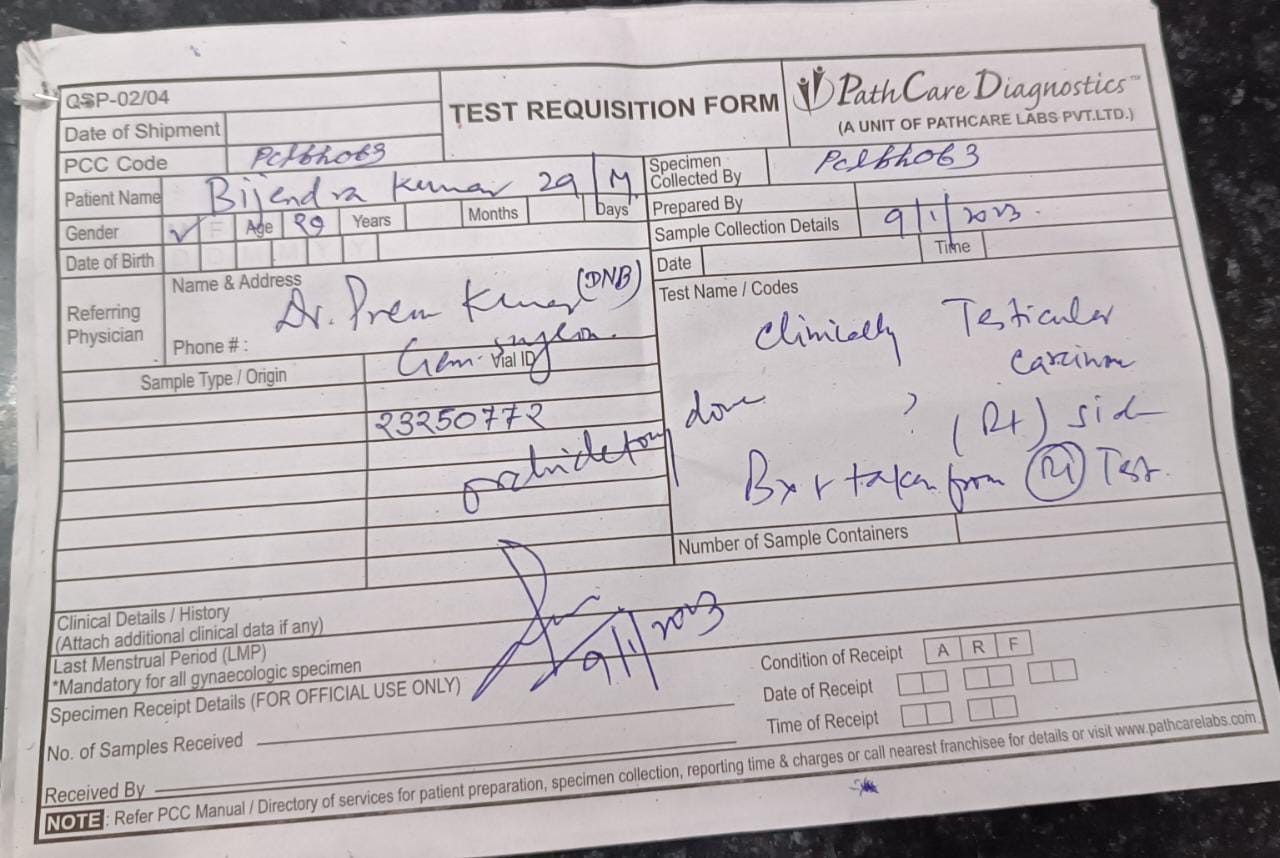 QSP-02/04
Date of Shipment
PCC Code Pclbh063
TEST REQUISITION FORM
PathCare Diagnostics™
(A UNIT OF PATHCARE LABS PVT.LTD.)
Patient Name Bijendra Kumar 29/M
Specimen Collected By Pclbh063
Gender F Age 29 Years Months Days
Prepared By
Sample Collection Details 9/1/2023
Date of Birth D D M M Y Y
Date Time
Referring Physician
Name & Address
Dr. Prem Kumar (DNB)
Phone # :
Gen. surgeon.
Test Name / Codes
Clinically Testicular
Carcinom
done ? (Rt) side
Bx taken from (Rt) Test.
Sample Type / Origin Vial ID
23250772
Number of Sample Containers
Clinical Details / History
(Attach additional clinical data if any)
9/1/2023
Last Menstrual Period (LMP)
*Mandatory for all gynaecologic specimen
Specimen Receipt Details (FOR OFFICIAL USE ONLY)
Condition of Receipt A R F
Date of Receipt
No. of Samples Received
Time of Receipt
Received By
NOTE : Refer PCC Manual / Directory of services for patient preparation, specimen collection, reporting time & charges or call nearest franchisee for details or visit www.pathcarelabs.com.